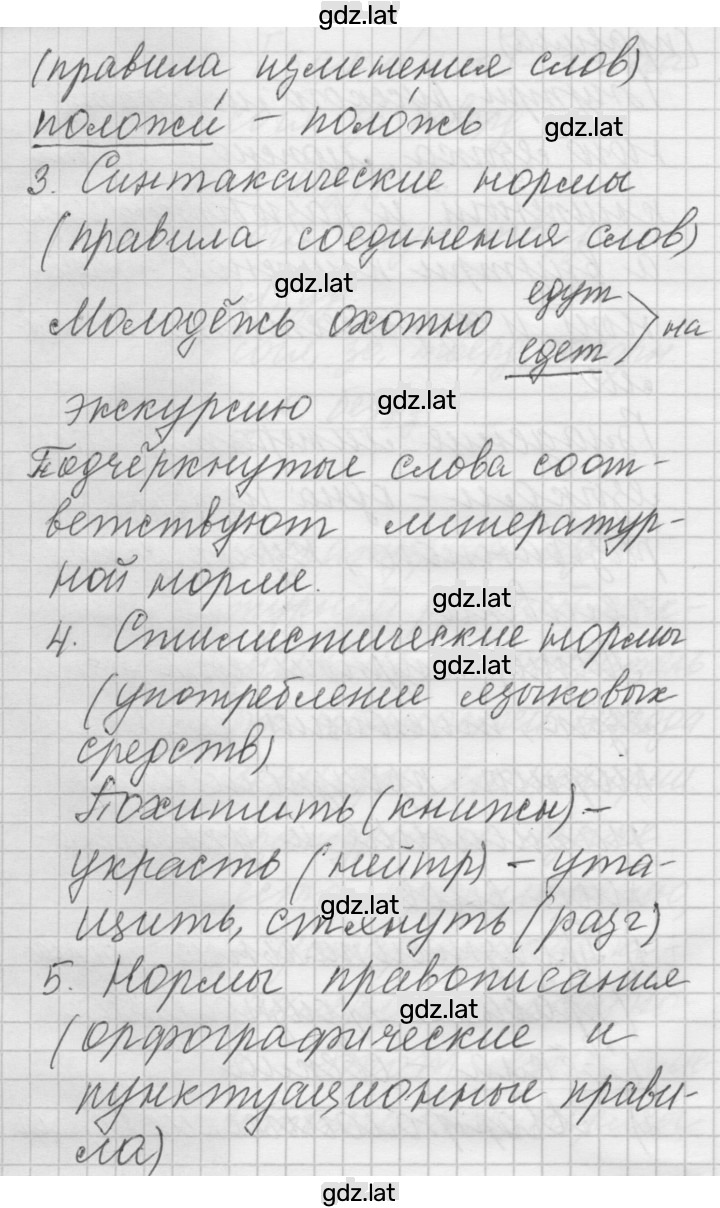 gdz.lat
(правила изменения слов)
положи́ – поло́жь
gdz.lat
3. Синтаксические нормы
(правила соединения слов)
gdz.lat
едут
Молодёжь охотно > на
едет
экскурсию
gdz.lat
Подчёркнутые слова соот-
ветствуют литератур-
ной норме.
gdz.lat
4. Стилистические нормы
gdz.lat
(употребление языковых
средств)
Похитить (книжн) –
украсть (нейтр) – ута-
gdz.lat
щить, стянуть (разг)
5. Нормы правописания
gdz.lat
(орфографические и
пунктуационные прави-
ла)
gdz.lat